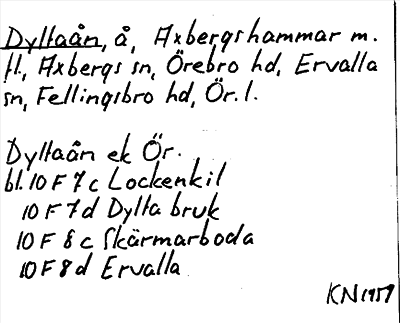 Dyltaån, å, Axbergshammar m.
fl., Axbergs sn, Örebro hd, Ervalla
sn, Fellingsbro hd, Ör. l.
Dyltaån ek Ör.
bl. 10 F 7 c Lockenkil
10 F 7 d Dylta bruk
10 F 8 c Skärmarboda
10 F 8 d Ervalla
KN 1959